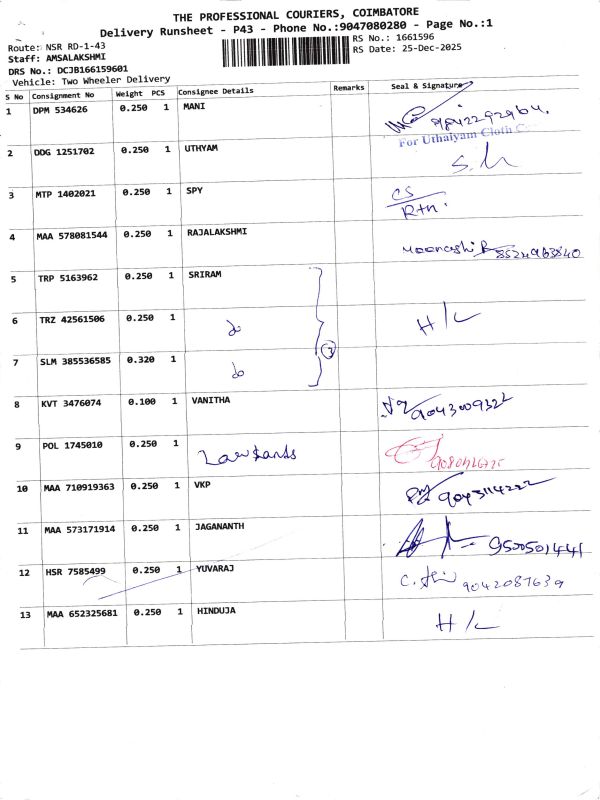 THE PROFESSIONAL COURIERS, COIMBATORE
Delivery Runsheet - P43 - Phone No.:9047080280 - Page No.:1
Route: NSR RD-1-43
RS No.: 1661596
Staff: AMSALAKSHMI
RS Date: 25-Dec-2025
DRS No.: DCJB166159601
Vehicle: Two Wheeler Delivery
S No Consignment No Weight PCS Consignee Details Remarks Seal & Signature
1 DPM 534626 0.250 1 MANI
For Uthaiyam Cloth
2 DDG 1251702 0.250 1 UTHYAM
3 MTP 1402021 0.250 1 SPY CS
R+n.
4 MAA 578081544 0.250 1 RAJALAKSHMI 8524963840
5 TRP 5163962 0.250 1 SRIRAM
6 TRZ 42561506 0.250 1 do H/L
3
7 SLM 385536585 0.320 1 do
8 KVT 3476074 0.100 1 VANITHA
9 POL 1745010 0.250 1
10 MAA 710919363 0.250 1 VKP 9043114222
11 MAA 573171914 0.250 1 JAGANANTH 9500501441
12 HSR 7585499 0.250 1 YUVARAJ 9042087639
13 MAA 652325681 0.250 1 HINDUJA H/L